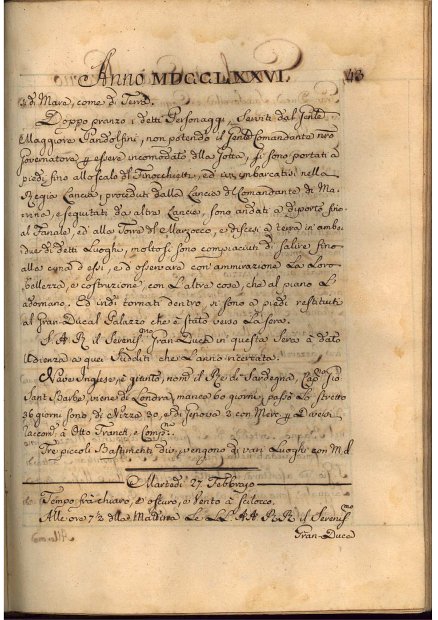 Anno MDCCLXXVI. 43
di Mare, come di Terra.
Doppo pranzo i detti Personaggi, Serviti dal Sente
Maggiore Pandolfini, non potendo il Sente Comandante nro
Governatore p essere incomodato dlla Gotta, si sono portati a
piedi fino allo Scalo dl Finocchietti, ed ivi imbarcatisi nella
Regia Lancia, preceduti dalla Lancia dl Comandante di Ma-
rina, e seguitati da altre Lancie, sono andati a diporto fino
al Fanale, ed alla Torre dl Marzocco, e discesi a terra in ambe-
due di detti Luoghi, molto si sono compiaciuti di salire fino
alla cima d essi, e d osservare con ammirazione La Loro
bellezza, e costruzione, con L'altre cose, che al piano L
adornano. Ed indi tornati dentro, si sono a piedi restituiti
al Gran-Ducal Palazzo che è stato verso La Sera.
S. A. R. il Serenismo Gran-Duca in questa Sera à dato
Udienza a quei Sudditi che L'anno ricercata.
Nave Inglese, è giunto, nomta il Re di Sardegna, Capno Gio
Sant Barbe, viene di Londra, manca 60 giorni, passò Lo Stretto
36 giorni sono di Nizza 30, e di Genova 2 con Merci p Diversi
raccomta a Otto Franck, e Compi
Tre piccoli Bastimenti divsi vengono di vari Luoghi con M. d
Martedi 27 Febbrajo
Tempo frà chiaro, e oscuro, e Vento a Scilocco.
Alle ore 7½ dlla Mattina Le LL. AA. RR. il Serenismo
Gran-Duca